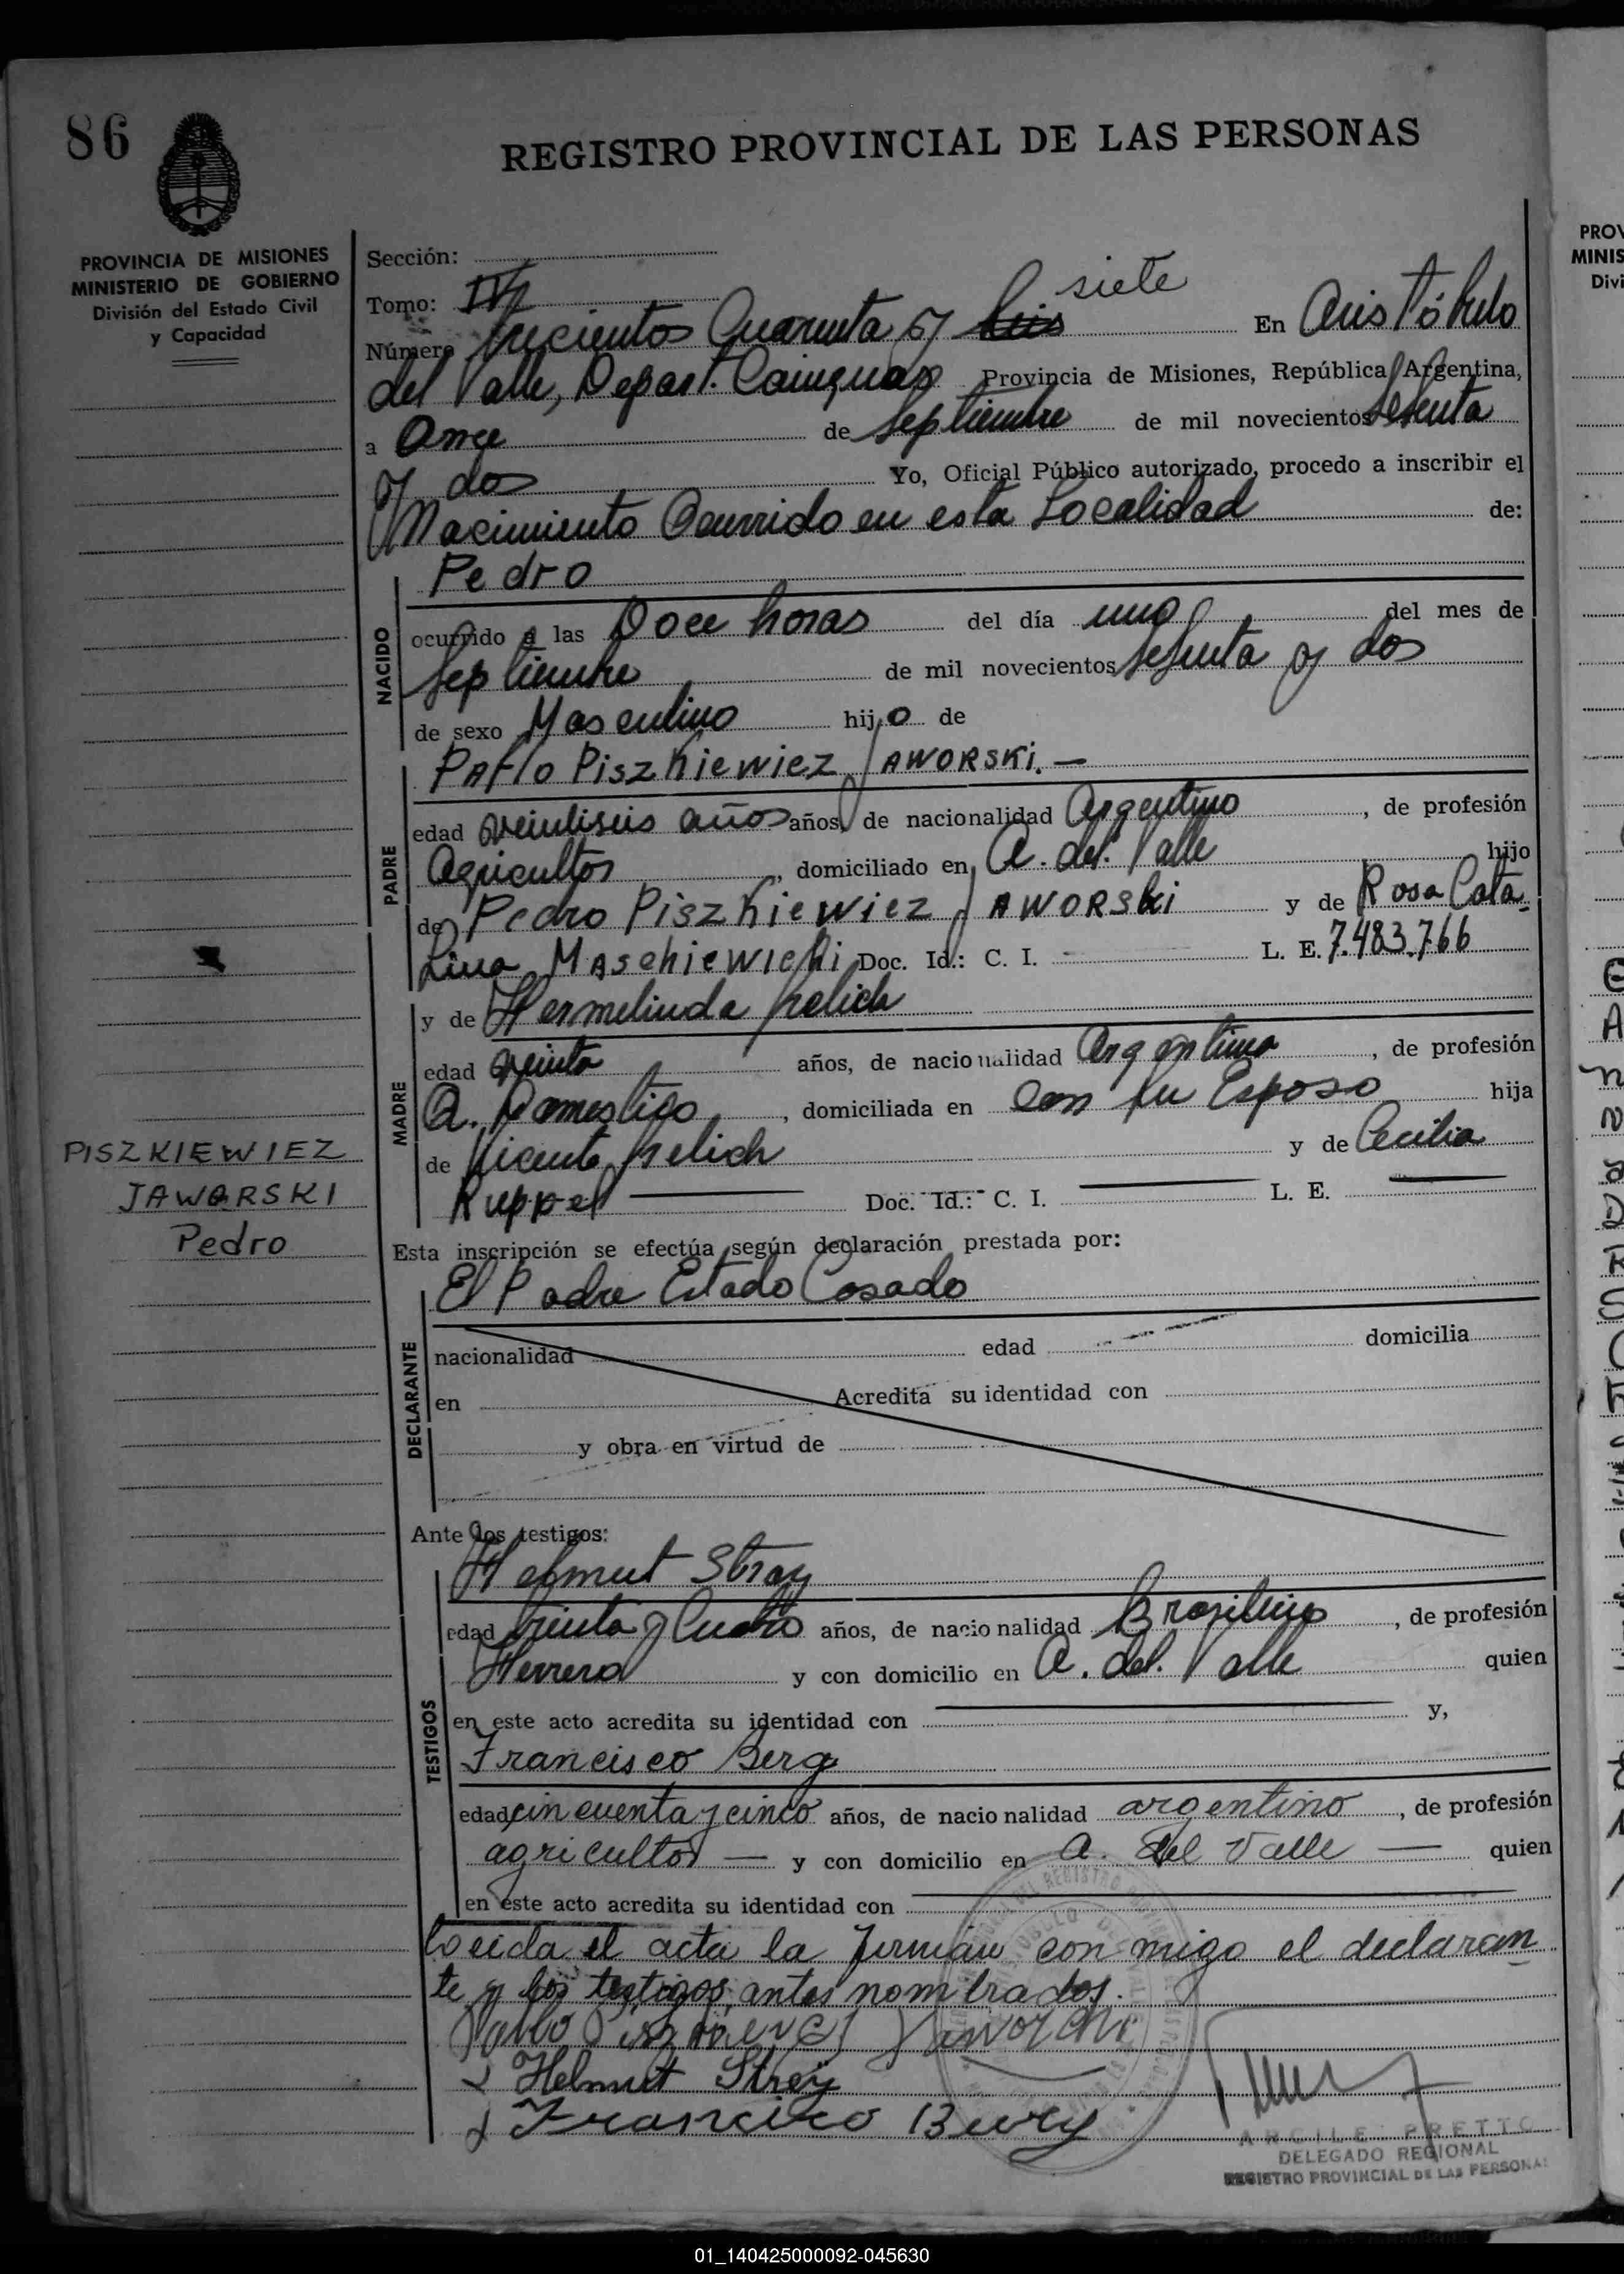 86
REGISTRO PROVINCIAL DE LAS PERSONAS
PROVINCIA DE MISIONES
MINISTERIO DE GOBIERNO
División del Estado Civil
y Capacidad
Sección:
Tomo: IV
siete
Número trecientos Cuarenta y seis En Aristóbulo
del Valle, Depart. Cainguas Provincia de Misiones, República Argentina,
a Once de septiembre de mil novecientos sesenta
y dos Yo, Oficial Público autorizado, procedo a inscribir el
Nacimiento Ocurrido en esta Localidad de:
Pedro
NACIDO
ocurrido a las Doce horas del día uno del mes de
septiembre de mil novecientos sesenta y dos
de sexo Masculino hijo de
Pablo Piszkiewiez JAWORSKi. —
PADRE
edad veintiseis años años, de nacionalidad Argentino, de profesión
Agricultor, domiciliado en A. del Valle hijo
de Pedro Piszkiewiez JAWORSki y de Rosa Cata-
Lina MASchiewichi Doc. Id.: C. I. L. E. 7.483.766
y de Hermelinda
MADRE
edad veinte años, de nacionalidad Argentina, de profesión
Q. Domestico, domiciliada en con su Esposo hija
de Vicente y de Cecilia
Ruppel Doc. Id.: C. I. L. E.
PISZKIEWIEZ
JAWORSKI
Pedro
Esta inscripción se efectúa según declaración prestada por:
El Padre Estado Casado
DECLARANTE
nacionalidad edad domicilia
en Acredita su identidad con
y obra en virtud de
Ante los testigos:
Helmut Strey
TESTIGOS
edad treinta y Cuatro años, de nacionalidad Brasilero, de profesión
Herrero y con domicilio en A. del. Valle quien
en este acto acredita su identidad con y,
Francisco Berg
edad cincuenta y cinco años, de nacionalidad argentino, de profesión
agricultor — y con domicilio en A. del Valle — quien
en este acto acredita su identidad con
Loeida el acta la firman con migo el declaran
te y los testigos, antes nombrados.
Pablo
Helmut Strey
Francisco Berg
ARCILE PRETTO
DELEGADO REGIONAL
REGISTRO PROVINCIAL DE LAS PERSONAS
PROV
MINIS
Divi
01_140425000092-045630